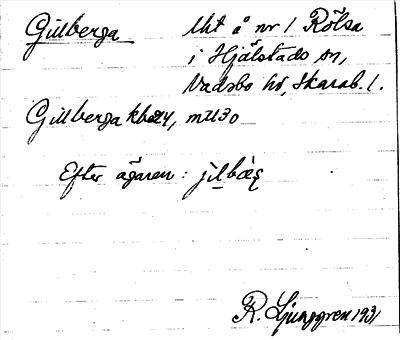 Gillberga Uht å nr 1 Rölsa
i Hjälstads sn,
Vadsbo hd, Skarab. l.
Gillberga kb 24, m 1130
Efter ägaren: jil bæç
R. Ljunggren 1931